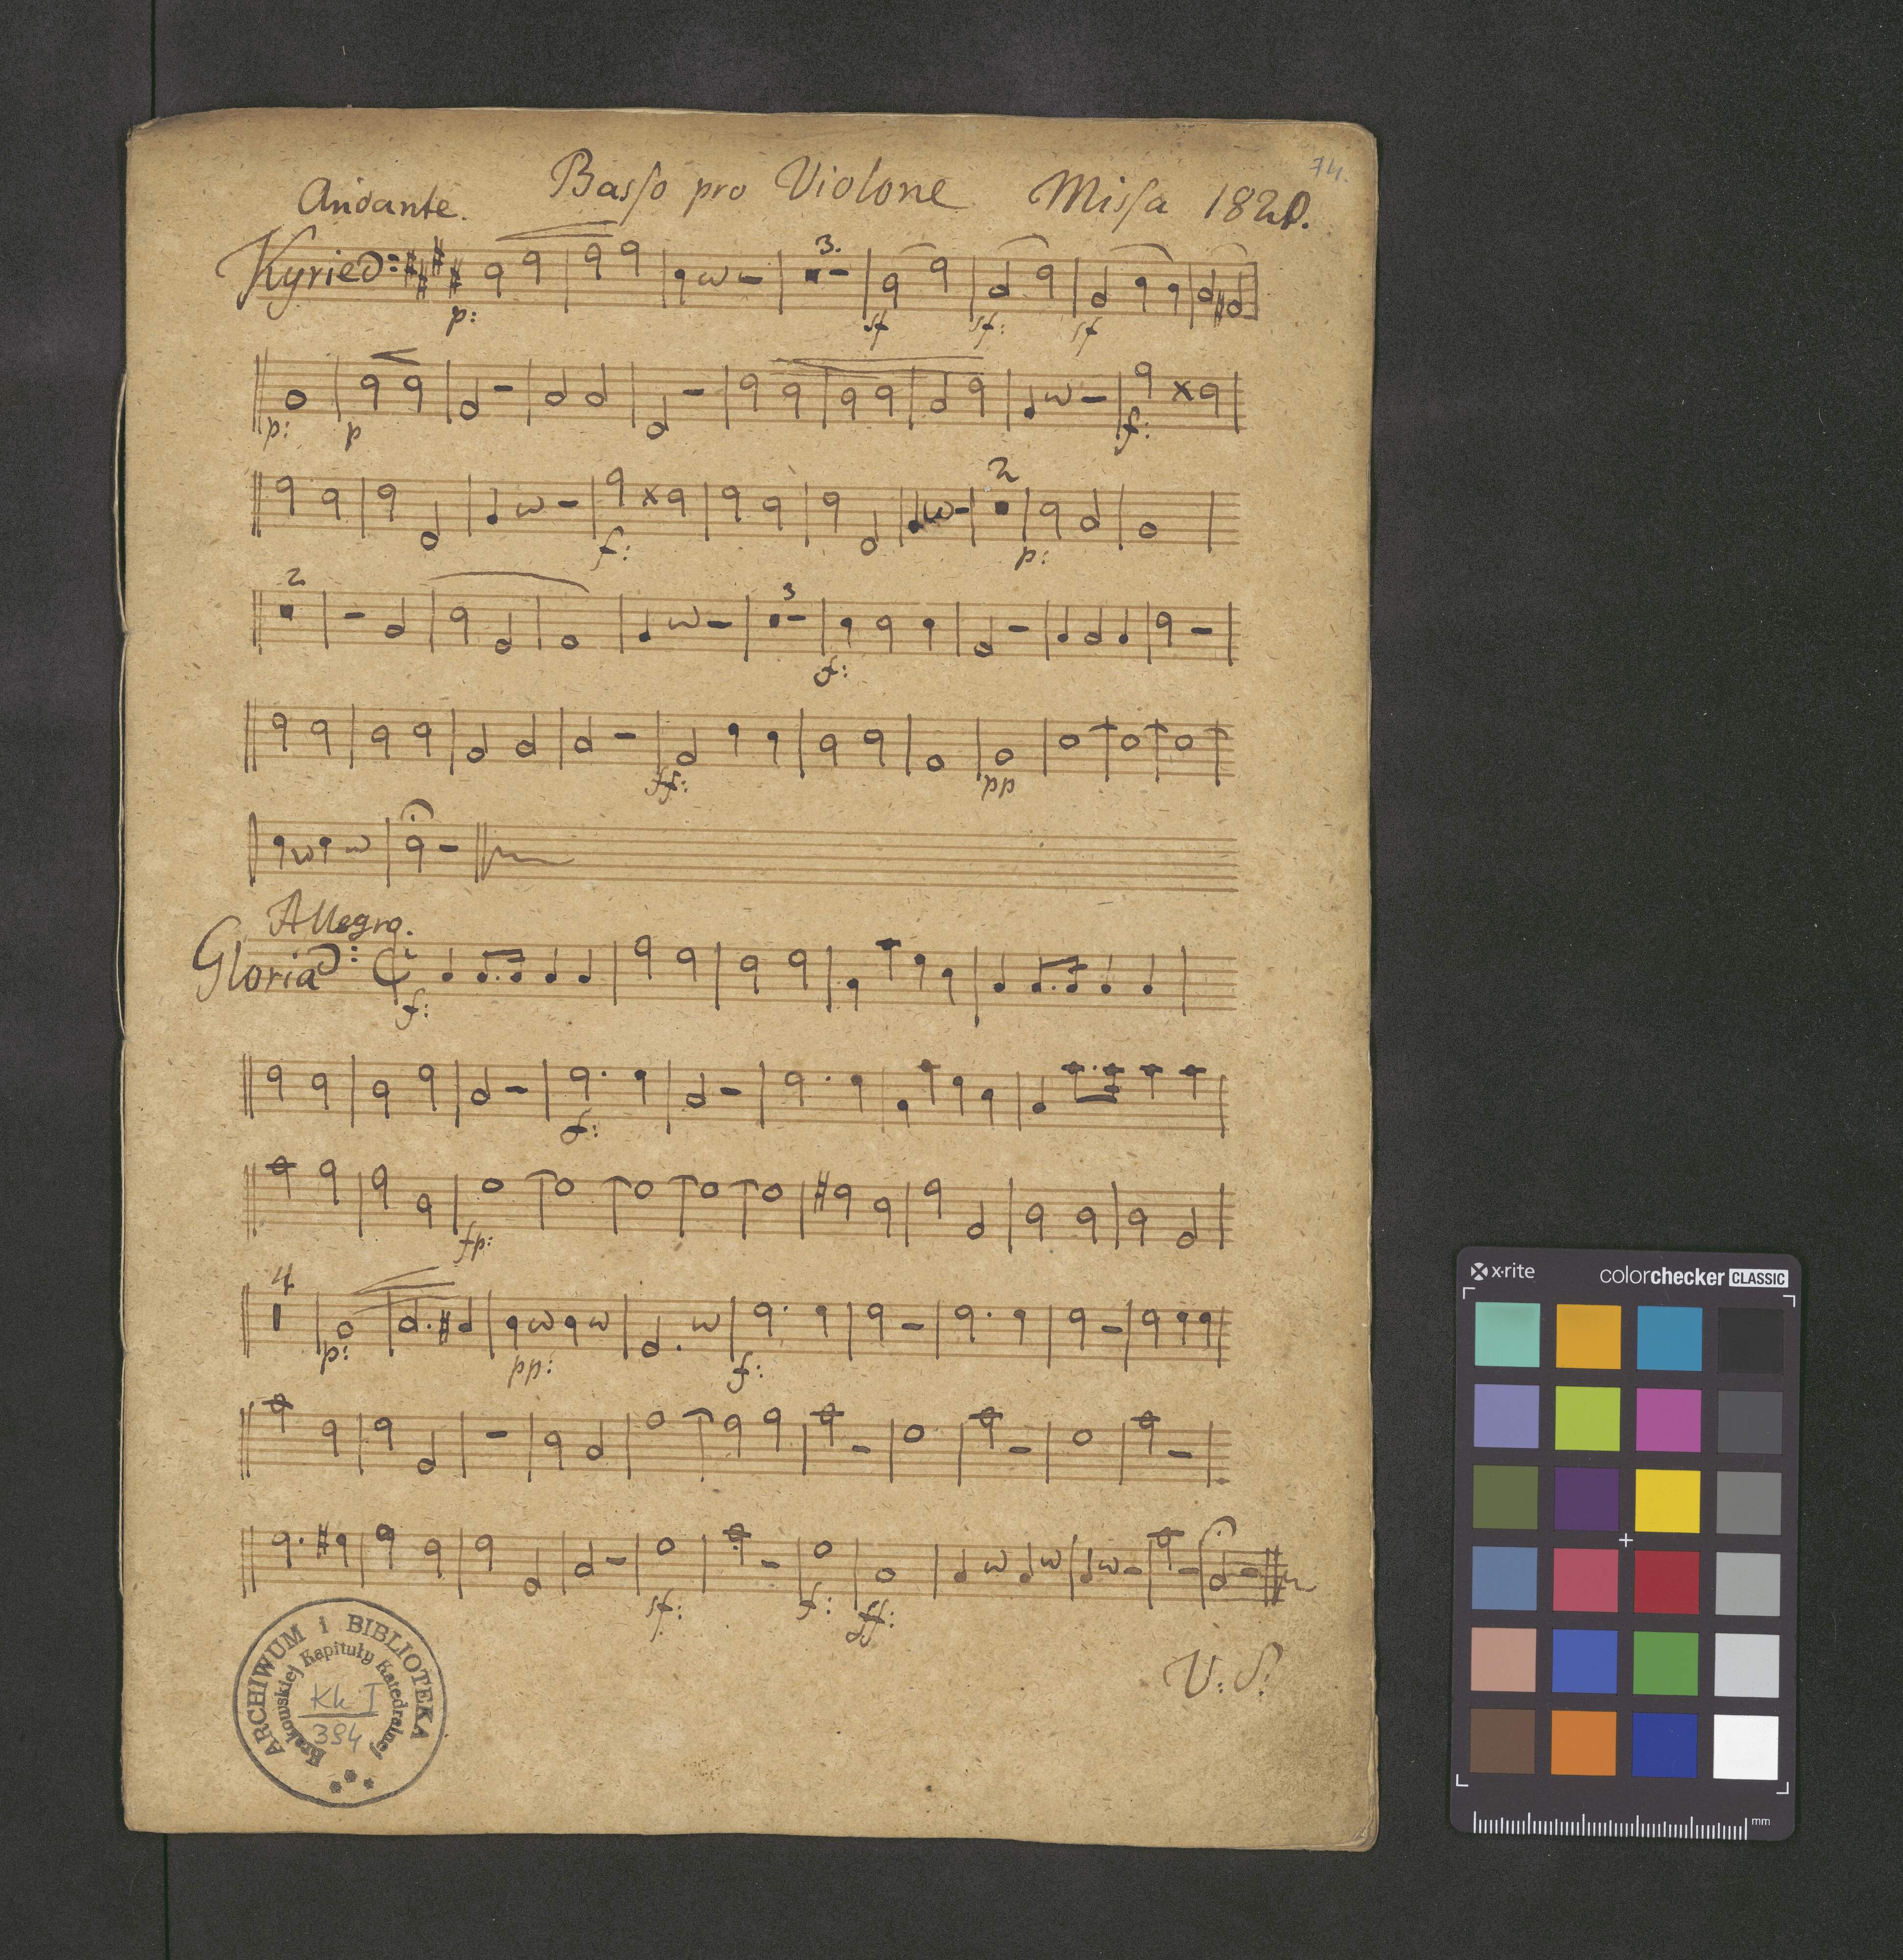 74.
Andante. Baſſo pro Violone Miſſa 1820.
Kyrie
3.
p: sf sf: sf
p: p f:
2
f: p:
2 3
f:
ff: pp
Allegro.
Gloria
f:
f:
fp:
4
p: pp: f:
sf: f: ff:
V: S:
ARCHIWUM i BIBLIOTEKA
Krakowskiej Kapituły Katedralnej
Kk I
394
x·rite colorchecker CLASSIC
mm